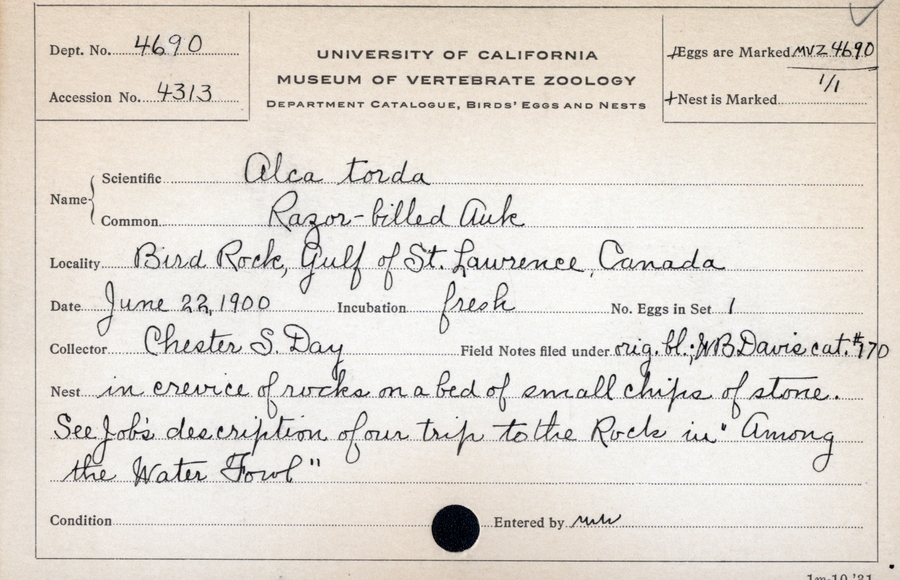 Dept. No. 4690
Accession No. 4313
UNIVERSITY OF CALIFORNIA
MUSEUM OF VERTEBRATE ZOOLOGY
DEPARTMENT CATALOGUE, BIRDS' EGGS AND NESTS
Eggs are Marked MVZ 4690
1/1
Nest is Marked
Name Scientific Alca torda
Common Razor-billed Auk
Locality Bird Rock, Gulf of St. Lawrence, Canada
Date June 22, 1900 Incubation fresh No. Eggs in Set 1
Collector Chester S. Day Field Notes filed under orig. bl.; WB Davis cat. #170
Nest in crevice of rocks on a bed of small chips of stone.
See Job's description of our trip to the Rock in "Among
the Water Fowl"
Condition Entered by
1m-10,'31